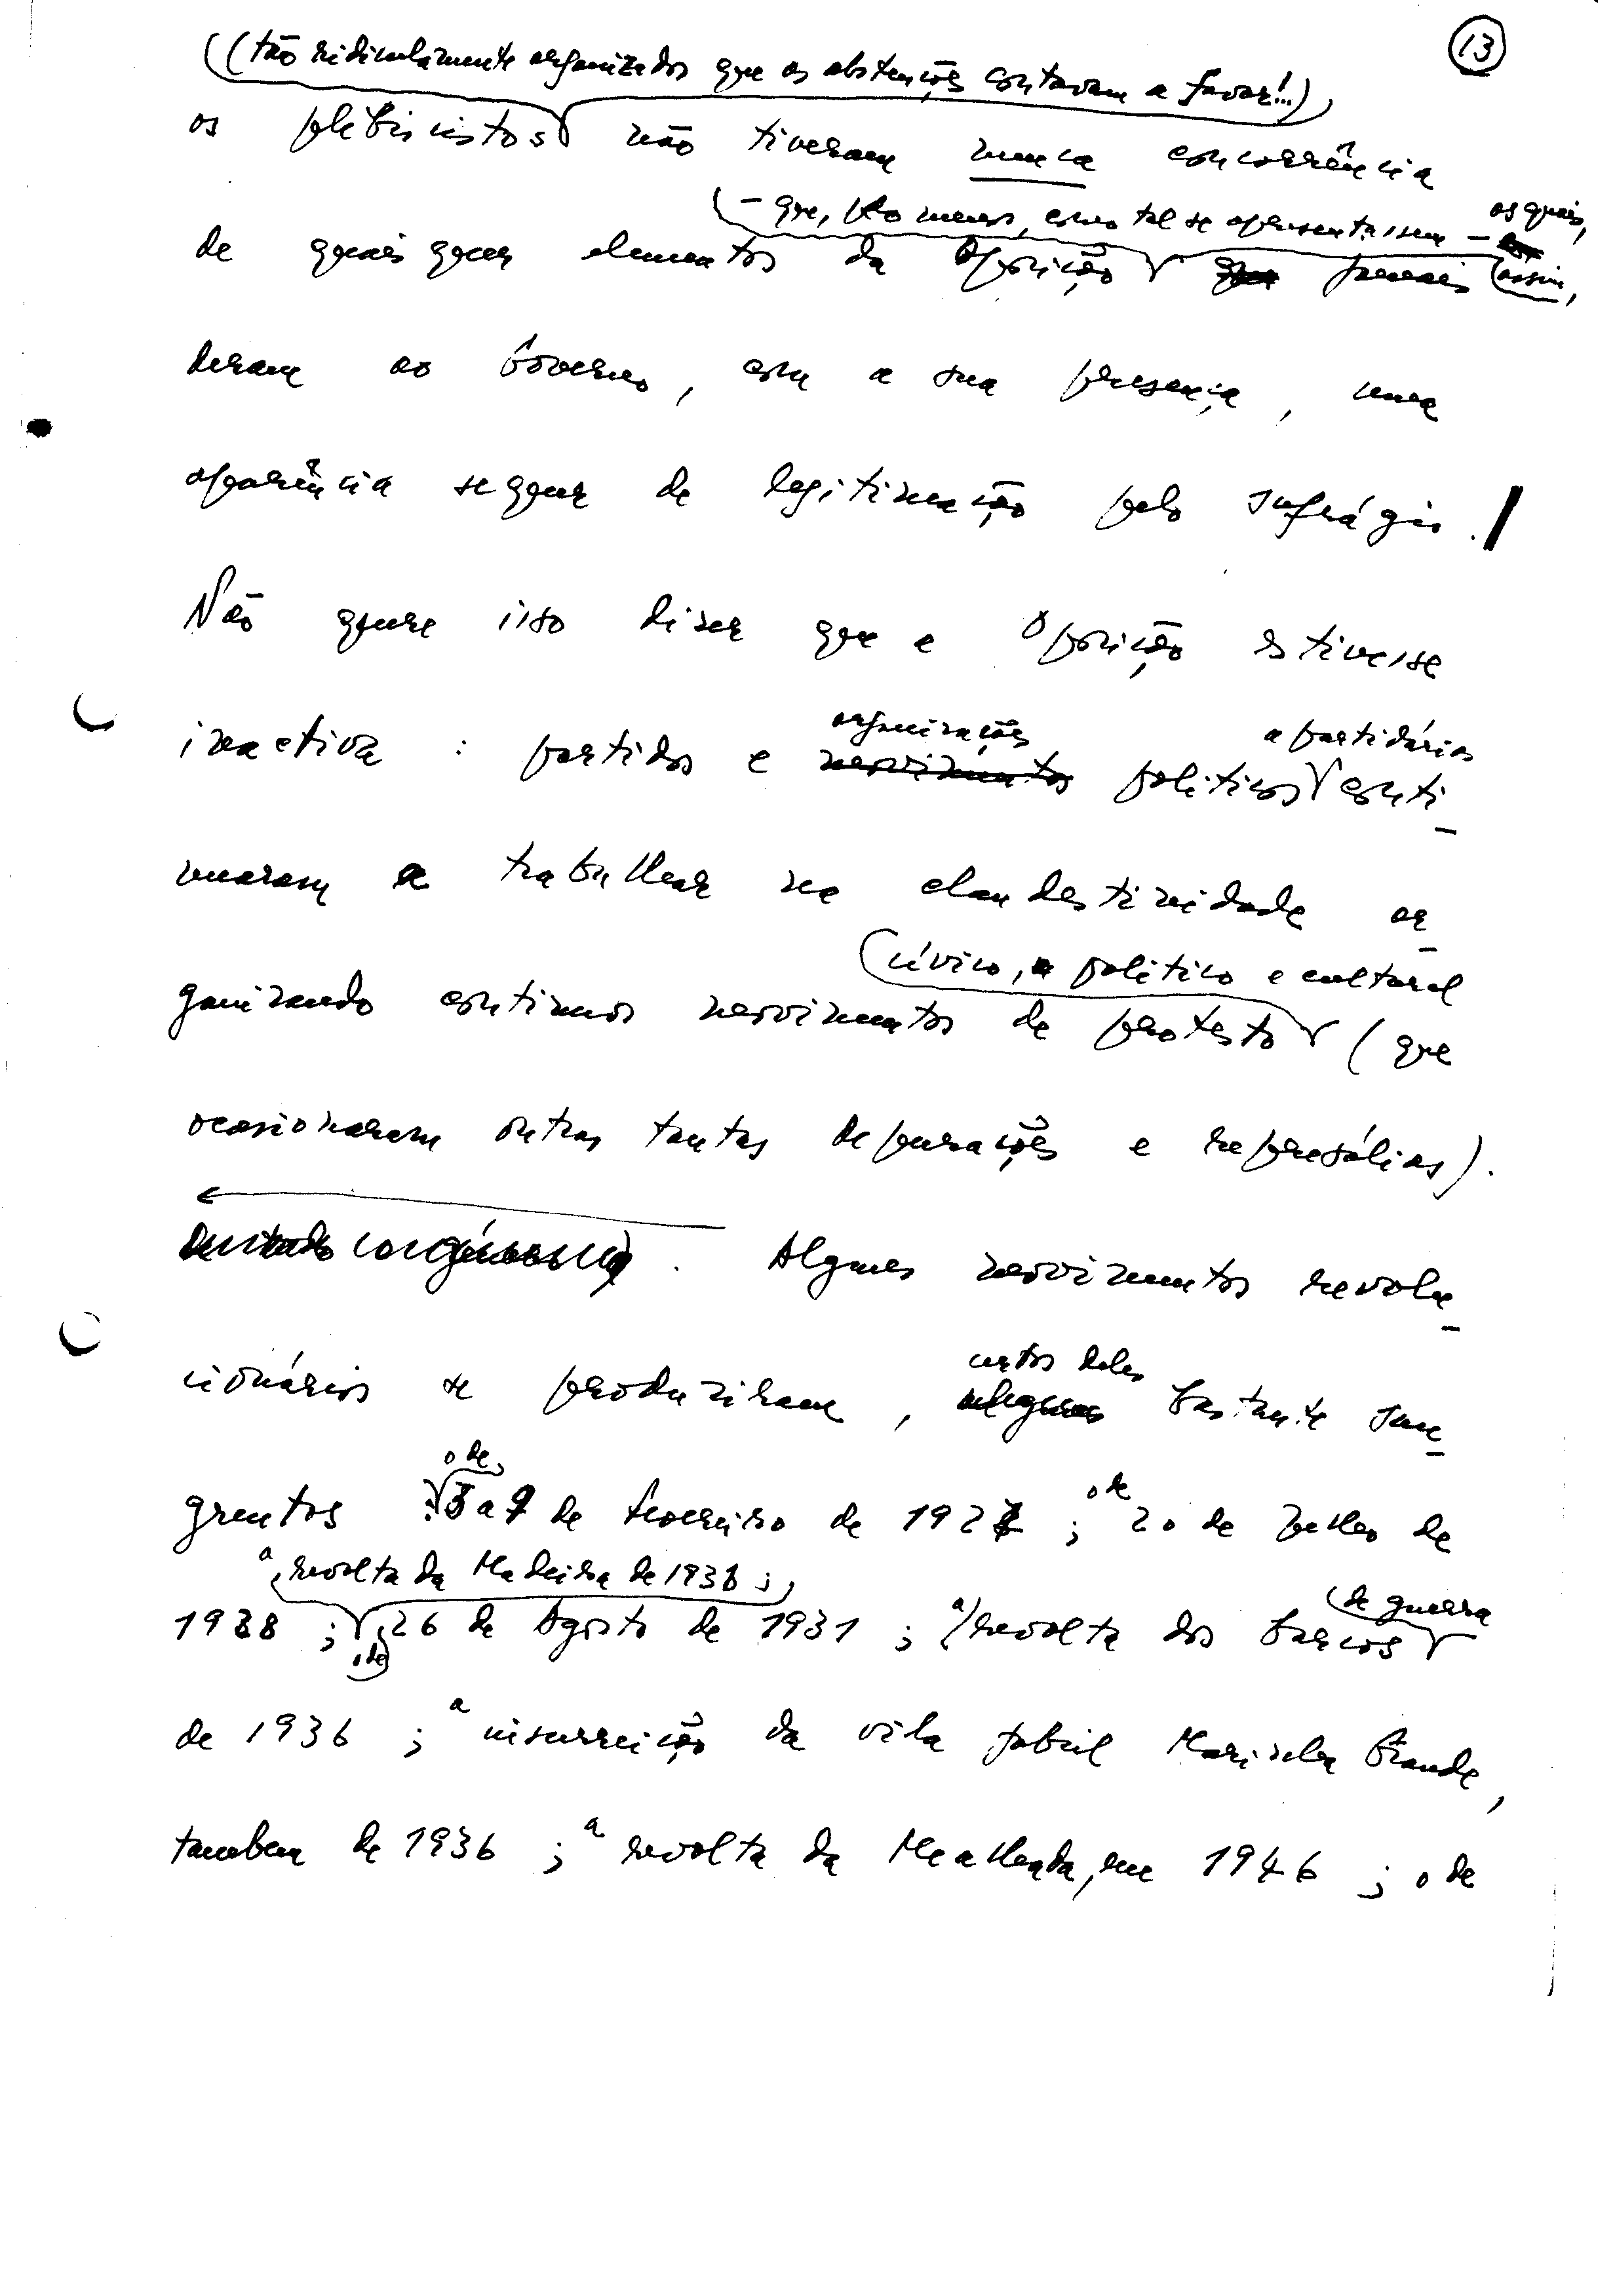 13
(tão ridiculamente organizados que as abstenções contavam a favor!...)
os plebiscitos não tiveram nunca concorrência
- que, pelo menos, como tal se apresentassem - os quais,
de quaisquer elementos da Oposição jamais assim,
deram ao Governo, com a sua presença, uma
aparência sequer de legitimação pelo sufrágio.
Não quere isso dizer que a Oposição estivesse
organizações apartidários
inactiva : partidos e movimentos politicos conti-
nuaram a trabalhar na clandestinidade or-
cívico, politico e cultural
ganizando continuos movimentos de protesto (que
ocasionaram outras tantas depurações e represálias).
. Alguns movimentos revolu-
certos deles
cionários se produziram, alguns bastante san-
o de
grentos : 3 a 9 de Fevereiro de 1927 ; o de 20 de Julho de
a revolta da Madeira de 1931 ; de guerra
1928 ; o de 26 de Agosto de 1931 ; a revolta dos barcos
de 1936 ; a insurreição da vila fabril Marinha Grande,
tambem de 1936 ; a revolta da Mealhada, em 1946 ; o de